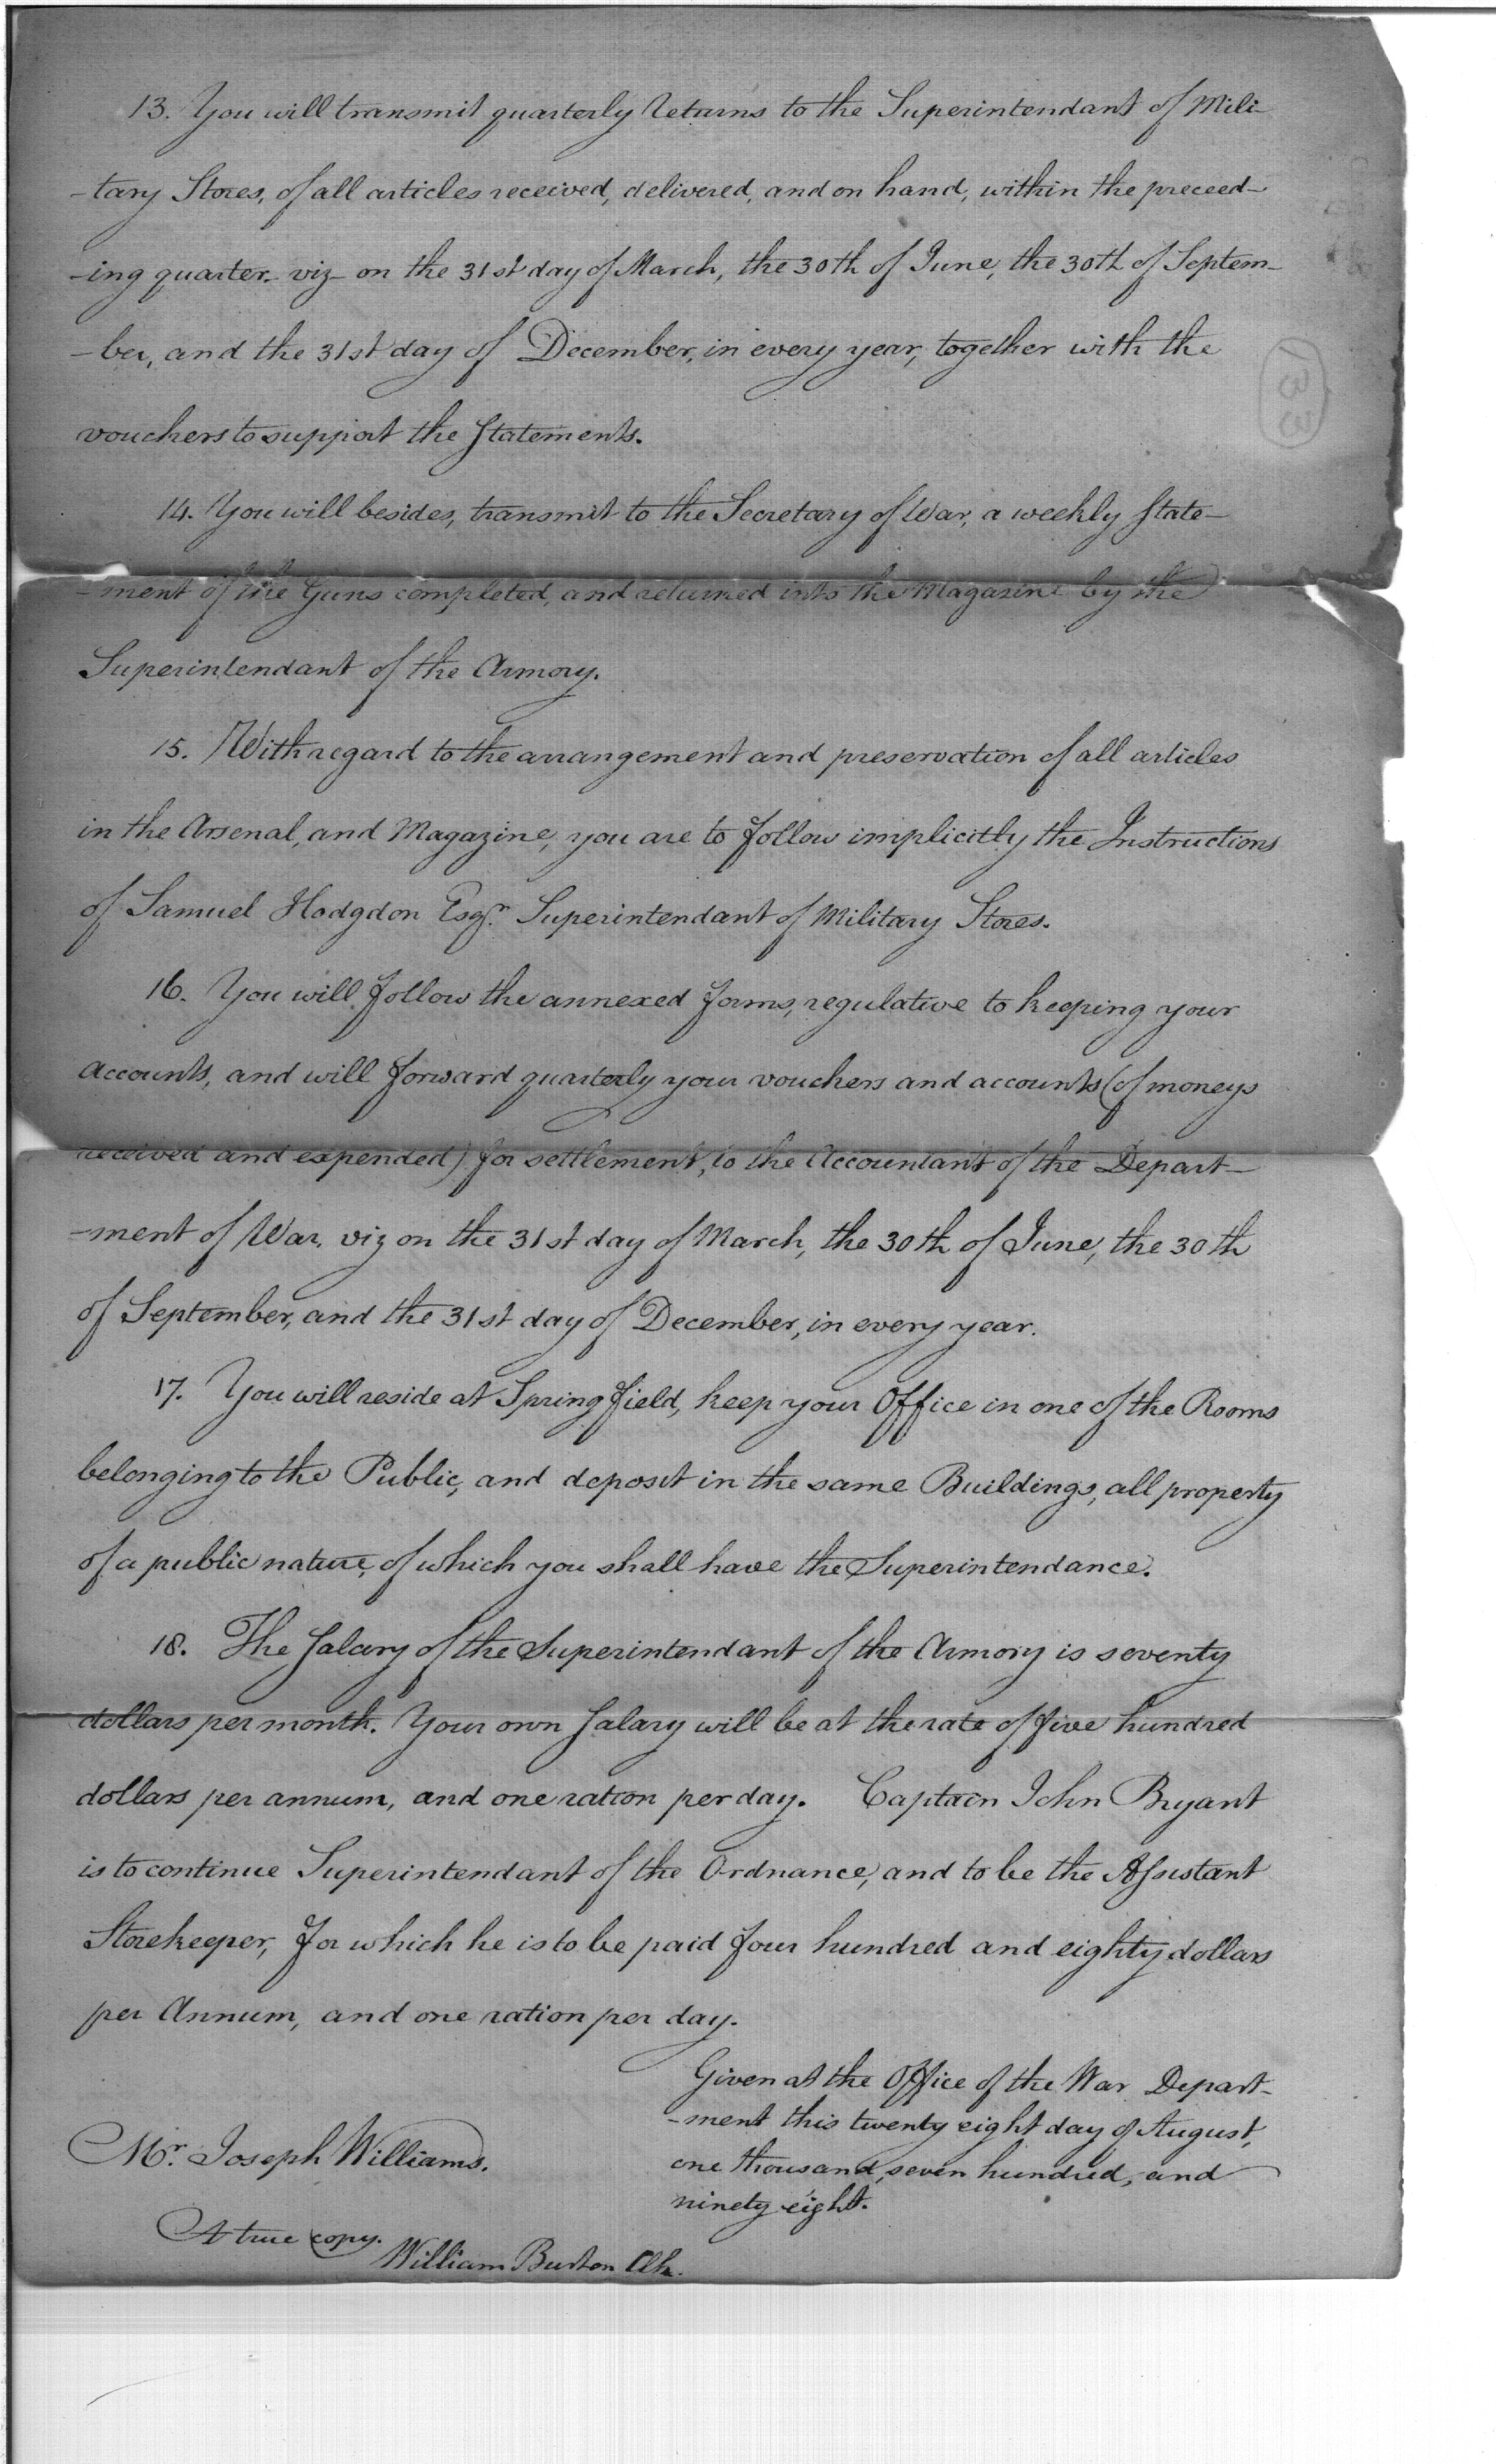 13. You will transmit quarterly returns to the Superintendant of Mili-
-tary Stores, of all articles received, delivered, and on hand, within the preceed-
-ing quarter. viz on the 31st day of March, the 30th of June, the 30th of Septem-
-ber, and the 31st day of December, in every year, together with the
vouchers to support the statements.
14. You will besides, transmit to the Secretary of War, a weekly state-
-ment of the Guns completed, and returned into the Magazine by the
Superintendant of the Armory.
15. With regard to the arrangement and preservation of all articles
in the Arsenal, and Magazine, you are to follow implicitly the Instructions
of Samuel Hodgdon Esqr. Superintendant of Military Stores.
16. You will follow the annexed forms, regulative to keeping your
accounts, and will forward quarterly your vouchers and accounts (of moneys
received and expended) for settlement, to the Accountant of the Depart-
-ment of War, viz on the 31st day of March, the 30th of June, the 30th
of September, and the 31st day of December, in every year.
17. You will reside at Springfield, keep your Office in one of the Rooms
belonging to the Public, and deposit in the same Buildings, all property
of a public nature, of which you shall have the Superintendance.
18. The Salary of the Superintendant of the Armory is seventy
dollars per month. Your own Salary will be at the rate of five hundred
dollars per annum, and one ration per day. Captain John Bryant
is to continue Superintendant of the Ordnance, and to be the Assistant
Storekeeper, for which he is to be paid four hundred and eighty dollars
per Annum, and one ration per day.
Given at the Office of the War Depart-
-ment this twenty eight day of August,
one thousand, seven hundred, and
ninety eight.
Mr. Joseph Williams.
A true copy.
William Burton Clk.